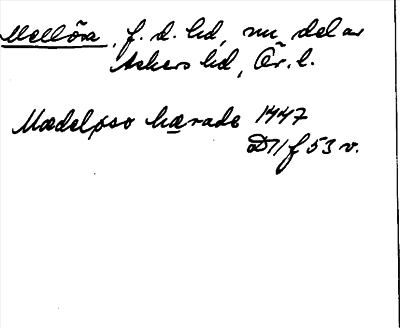 Mellösa, f. d. hd, nu del av
Askers hd, Ör. l.
Mædeløso hærade 1447
D 11 f 53 v.